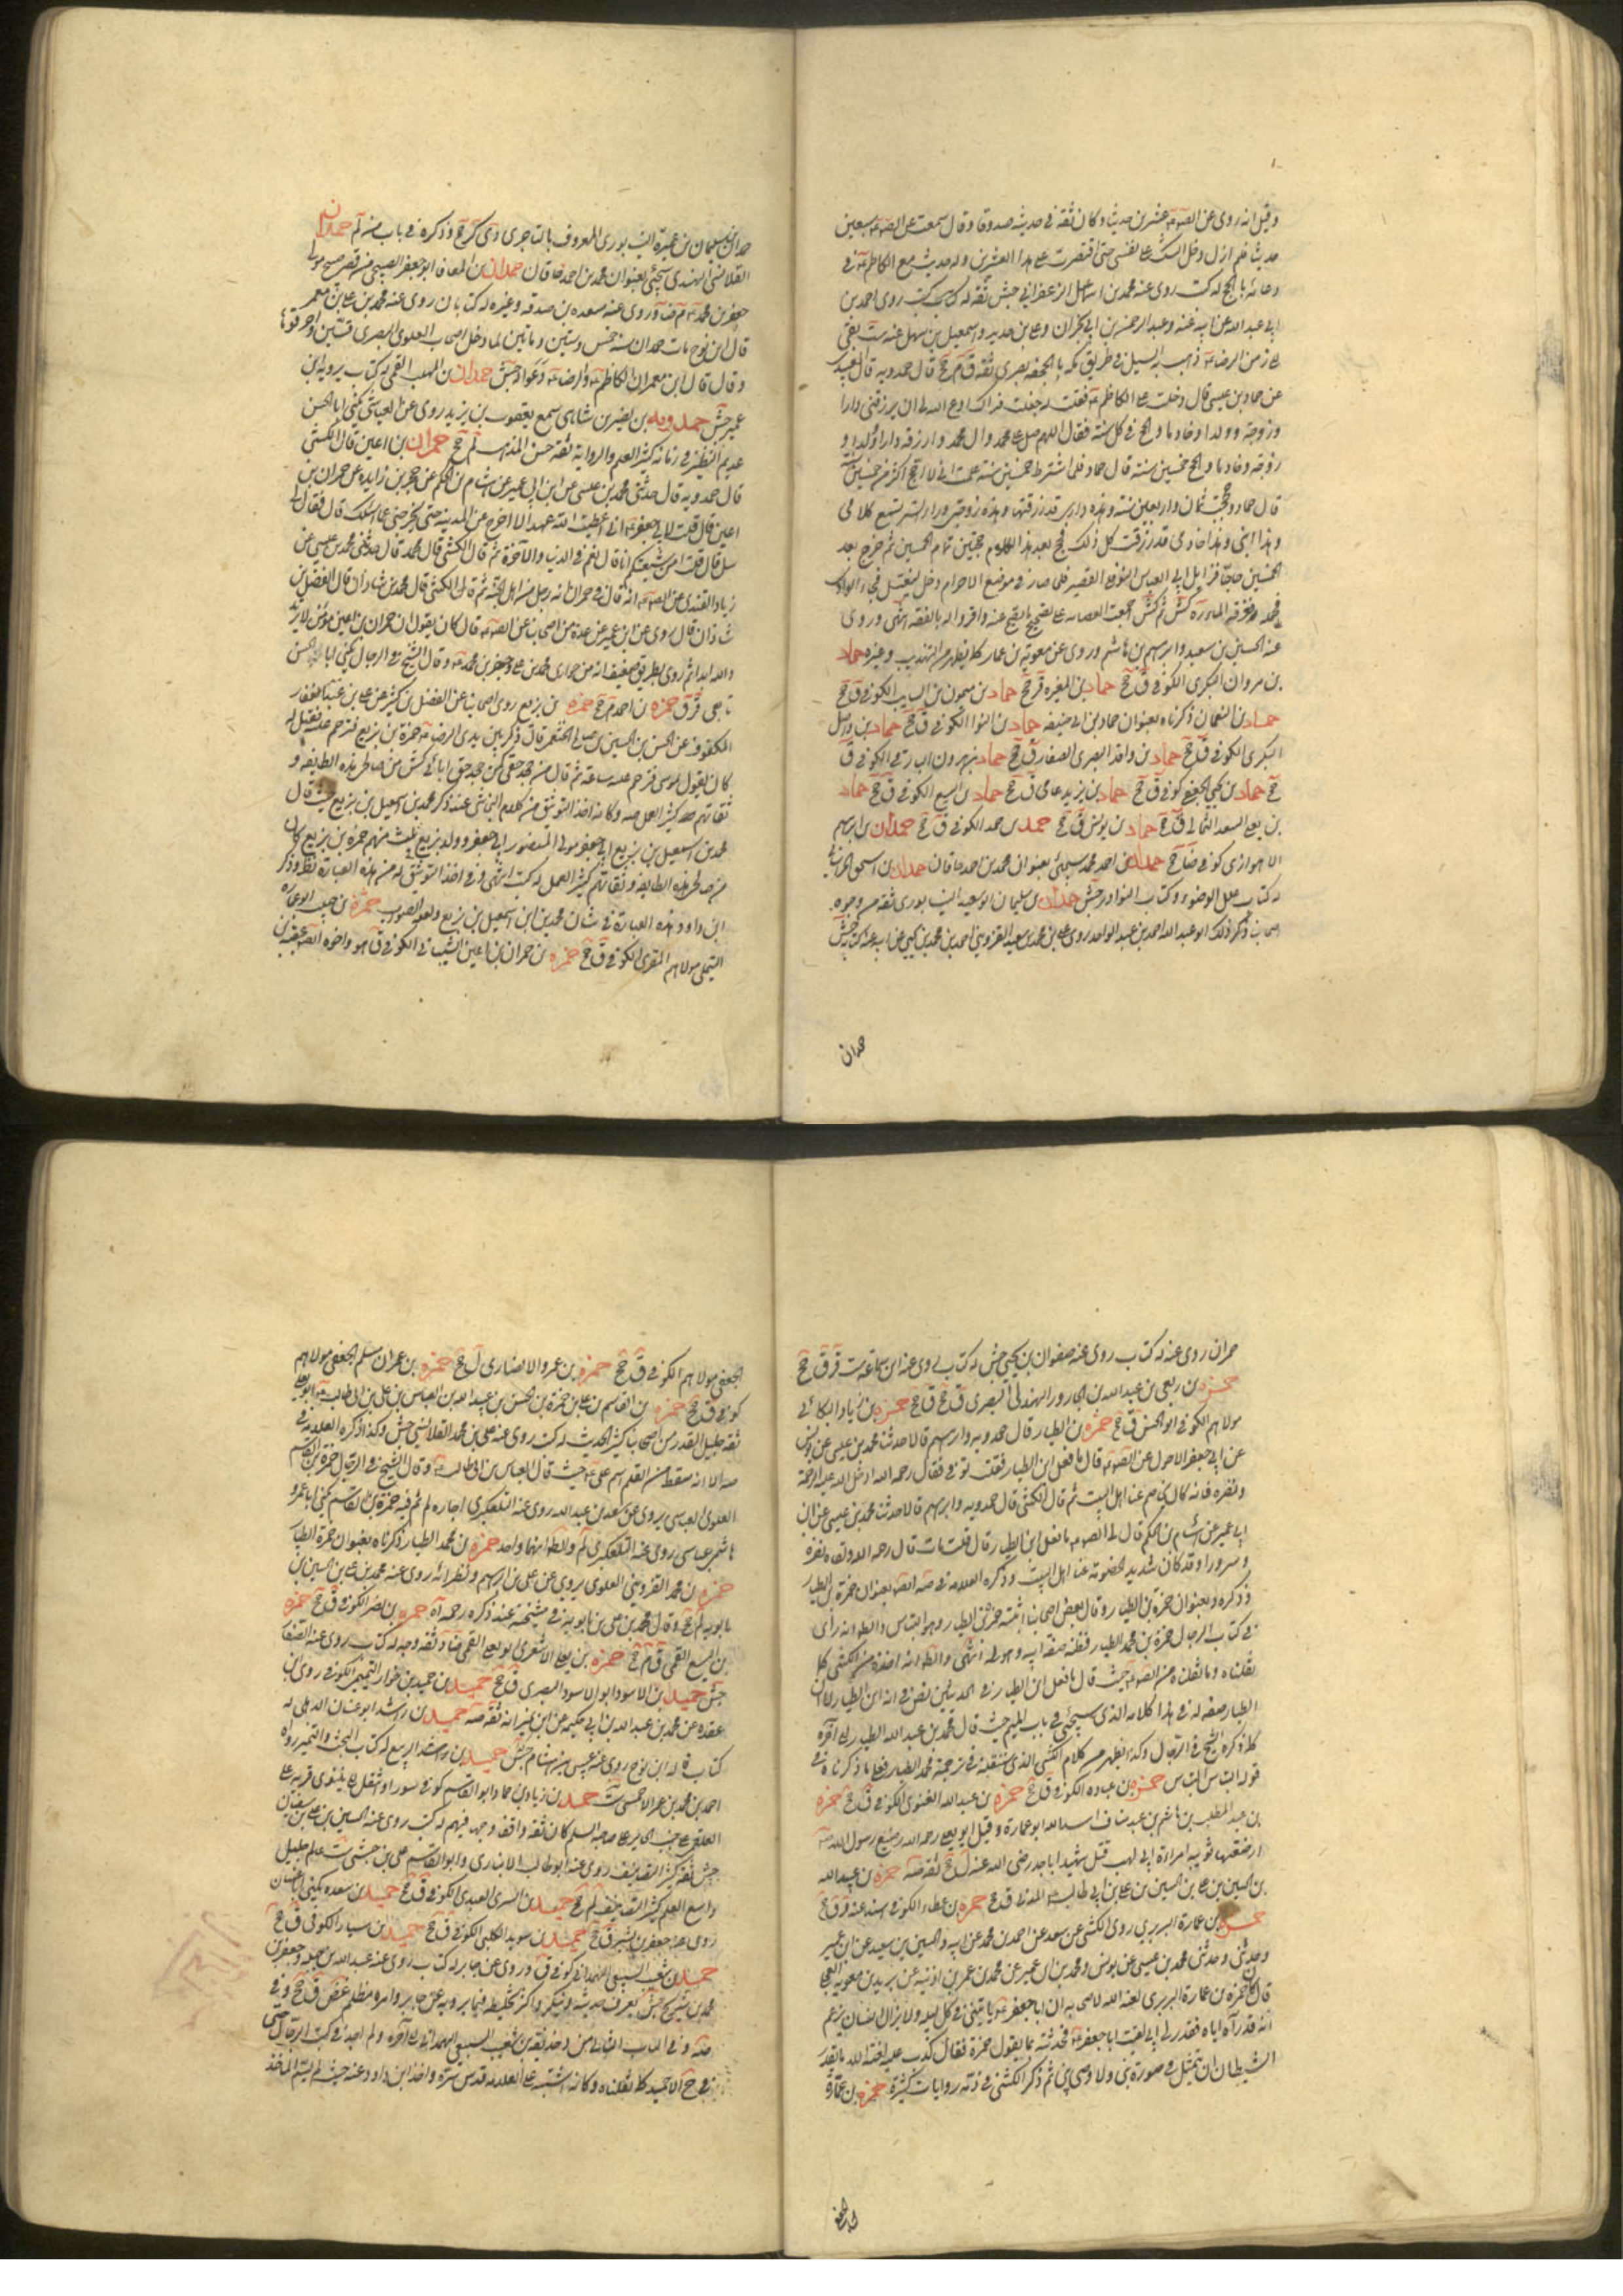 وقيل انه روى عن الصم عشرين حديثا وكان ثقة في حديثه صدوقا وقال سمعت عن الصم سبعين
حديثا فلم ازل ادخل الشك على نفسى حتى اقتصرت على هذا العشرين وله حديث مع الكاظم في
دعائه بالحج له كت روى عنه محمد بن اسمعيل الزعفراني جش ثقة له كتب روى احمد بن
ابى عبد الله عن ابيه عنه وعبد الرحمن بن ابى نجران وعلى بن حديد واسمعيل بن سهل عنه ست بقى
الى زمن الرضا ذهب به السيل في طريق مكة بالجحفة بصرى ثقة ق م جخ قال حمدويه قال العبيدى
عن حماد بن عيسى قال دخلت على الكاظم فقلت له جعلت فداك ادع الله لى ان يرزقنى دارا
وزوجة وولدا وخادما والحج في كل سنة فقال اللهم صل على محمد وال محمد وارزقه دارا وولدا و
زوجة وخادما والحج خمسين سنة قال حماد فلما اشترط خمسين سنة علمت انى لا احج اكثر من خمسين سنة
قال حماد وحججت ثمان واربعين سنة وهذه دارى قد رزقتها وهذه زوجتى وراء الستر تسمع كلامى
وهذا ابنى وهذا خادمى قد رزقت كل ذلك فحج بعد هذا الكلام حجتين تمام الخمسين ثم خرج بعد
الخمسين حاجا فزامل ابا العباس النوفلى القصير فلما صار في موضع الاحرام دخل يغتسل فجاء الوادى
فحمله فغرقه الماء ره كش ثم كش اجمعت العصابة على تصحيح ما يصح عنه واقروا له بالفقه انتهى وروى
عنه الحسين بن سعيد وابرهيم بن هاشم وروى عن معوية بن عمار كما يظهر من التهذيب وغيره حماد
بن مروان البكرى الكوفى ق جخ حماد بن المغيرة قر جخ حماد بن ميمون بن السايب الكوفى ق جخ
حماد بن النعمان ذكرناه بعنوان حماد بن ابى حنيفة حماد بن النوا الكوفى ق جخ حماد بن واصل
البكرى الكوفى ق جخ حماد بن واقد البصرى الصفار ق جخ حماد بن هرون البارقى الكوفى ق
جخ حماد بن يحيى الجعفى كوفى ق جخ حماد بن يزيد عامى ق جخ حماد بن اليسع الكوفى ق جخ حماد
بن يعلى السعدى الثمالى ق جخ حماد بن يونس ق جخ حمد بن حمد الكوفى ق جخ حمدان بن ابرهيم
الاهوازى كوفى ضا جخ حمدان بن احمد محمد سيجئ بعنوان محمد بن احمد خاقان حمدان بن اسحق الخراسانى
له كتاب علل الوضوء وكتاب النوادر جش حمدان بن سليمان ابو سعيد النيسابورى ثقة من وجوه
اصحابنا ذكر ذلك ابو عبد الله احمد بن عبد الواحد روى على بن محمد بن سعيد القزوينى احمد بن محمد بن يحيى عن ابيه عنه كتابه جش
حمدان
حمدان بن سليمان بن عميرة النيسابورى المعروف بالتاجر دى كر جخ وذكره في باب من لم حمدان
القلانسى النهدى سيجئ بعنوان محمد بن احمد خاقان حمدان بن المعافا ابو جعفر الصبيحى من قصر صبيح مولى
جعفر بن محمد م ضا وروى عنه مسعدة بن صدقة وغيره له كتابان روى عنه محمد بن على بن معمر
قال ابن نوح مات حمدان سنة خمس وستين ومائتين لما دخل اصحاب العلوى البصرى قسين واحرقوها
وقال قال ابن معمر ان الكاظم والرضا دعوا له جش حمدان بن المهلب القمى له كتاب يرويه ابن ابى
عمير جش حمدويه بن نصير بن شاهى سمع يعقوب بن يزيد روى عنه العياشى يكنى ابا الحسن
عديم النظير في زمانه كثير العلم والرواية ثقة حسن المذهب لم جخ حمران بن اعين قال الكشى
قال حمدويه قال حدثنى محمد بن عيسى عن ابن ابى عمير عن هشام بن الحكم عن حجر بن زايده عن حمران بن
اعين قال قلت لابى جعفر انى اعطيت الله عهدا الا اخرج من المدينة حتى تخبرنى عما اسئلك قال فقال لى
سل قال قلت امن شيعتكم انا قال نعم في الدنيا والاخرة ثم قال الكشى قال محمد قال حدثنى محمد بن عيسى عن
زياد القندى عن الصم انه قال في حمران انه رجل من اهل الجنة ثم قال الكشى قال محمد بن شاذان قال الفضل بن
شاذان قال روى عن ابن ابى عمير عن عدة من اصحابنا عن الصم قال كان يقول ان حمران بن اعين مؤمن لا يرتد
والله ابدا ثم روى بطريق ضعيف انه من حوارى محمد بن على وجعفر بن محمد وقال الشيخ في الرجال يكنى ابا الحسن
تابعى قر ق حمزه بن احمد م جخ حمزه بن بزيع روى اصحابنا عن الفضل بن كثير عن على بن عبد الغفار
المكفوف عن الحسن بن الحسين بن صالح الخثعمى قال ذكر بين يدى الرضا حمزة بن بزيع فترحم عليه فقيل له
كان يقول بموسى فترحم عليه ساعة ثم قال من جحد حقى كمن جحد حق ابائى كش من صالحى هذه الطايفة و
ثقاتهم كثير العمل صه وكانه اخذ التوثيق من كلام النجاشى عند ذكر محمد بن اسمعيل بن بزيع حيث قال
محمد بن اسمعيل بن بزيع ابو جعفر مولى المنصور ابى جعفر وولد بزيع بيت منهم حمزة بن بزيع كان
من صالحى هذه الطايفة وثقاتهم كثير العمل له كتب انتهى وفي اخذ التوثيق له من هذه العبارة نظر وذكر
ابن داود هذه العبارة في شان محمد بن اسمعيل بن بزيع ولعله الصواب حمزة بن حبيب ابو عماره
التيمى مولاهم المقرى الكوفى ق جخ حمزه بن حمران بن اعين الشيبانى الكوفى ق هو واخوه ايضا عقبة بن
حمران روى عنه له كتاب روى عنه صفوان بن يحيى جش له كتاب روى عنه ابن سماعة ست قر ق جخ
حمزه بن ربعى بن عبد الله بن الجارود الهذلى البصرى ق جخ ق جخ حمزه بن زياد البكائى
مولاهم الكوفى ابو الحسن ق جخ حمزه بن الطيار قال حمدويه وابرهيم قالا حدثنا محمد بن عيسى عن يونس
عن ابى جعفر الاحول عن الصم قال ما فعل ابن الطيار فقلت توفى فقال رحمه الله ادخل الله عليه الرحمة
ونضره فانه كان يخاصم عنا اهل البيت ثم قال الكشى قال حمدويه وابرهيم قالا حدثنا محمد بن عيسى عن ابن
ابى عمير عن هشام بن الحكم قال لى الصم ما فعل ابن الطيار قال قلت مات قال رحمه الله ولقاه نضرة
وسرورا وقد كان شديد الخصومة عنا اهل البيت وذكره العلامه في صه ايضا بعنوان حمزة بن الطيار
وذكره د بعنوان حمزة بن الطيار وقال بعض اصحابنا اثبته حمزة بن الطيار وهو التباس والظ انه راى
في كتاب الرجال حمزة بن محمد الطيار فظنه صفة ابيه وهو له انتهى والظ انه اخذه من الكشى كما
نقلناه وما نقلناه عن الصم حيث قال ما فعل ابن الطيار في الحديثين نص في انه ابن الطيار لا ان
الطيار صفة له في هذا كلامه الذى سيجئ في باب الميم حيث قال محمد بن عبد الله الطيار الى اخره
كما ذكره الشيخ في الرجال وكذا يظهر من كلام الكشى الذى سننقله في ترجمة محمد الطيار فعلى ما ذكرناه في
قوله التباس التباس حمزه بن عباده الكوفى ق جخ حمزه بن عبد الله الغنوى الكوفى ق جخ حمزه
بن عبد المطلب بن هاشم بن عبد مناف اسد الله ابو عمارة وقيل ابو يعلى رحمه الله رضيع رسول الله
ارضعتهما ثويبه امراة ابى لهب قتل شهيدا باحد رضى الله عنه ل جخ ثقة صه حمزه بن عبيد الله
بن الحسين بن على بن الحسين بن على بن ابى طالب المدنى ق جخ حمزه بن عطاء الكوفى اسند عنه ق ق جخ
حمزه بن عمارة البربرى روى الكشى عن سعد عن احمد بن محمد عن ابيه والحسين بن سعيد عن ابن ابى عمير
وحدثنى وحدثنى محمد بن عيسى عن يونس ومحمد بن ابى عمير عن محمد بن عمر بن اذينه عن بريد بن معوية العجلى
قال كان حمزه بن عمارة البربرى لعنه الله لاصحابه ان ابا جعفر ياتينى في كل ليلة ولا يزال انسان يزعم
انه قد راه اياه فقدر لى انى لقيت ابا جعفر فحدثته بما يقول حمزة فقال كذب عليه لعنة الله ما يقدر
الشيطان ان يتمثل في صورة نبى ولا وصى نبى ثم ذكر الكشى في ذمه روايات كثيرة حمزه بن عمارة
الجعفى
الجعفى مولاهم الكوفى ق جخ حمزه بن عمرو الانصارى ل جخ حمزه بن عمران مسلم الجعفى مولاهم
كوفى ق جخ حمزه بن القاسم بن على بن حمزة بن الحسن بن عبيد الله بن العباس بن على بن ابى طالب ابو يعلى
ثقة جليل القدر من اصحابنا كثير الحديث له كتب روى عنه على بن محمد القلانسى جش وكذا ذكره العلامه في
صه الا انه سقط من القلم اسم على حيث قال العباس بن ابى طالب وقال الشيخ في الرجال حمزة بن القاسم
العلوى العباسى يروى عن سعد بن عبد الله روى عنه التلعكبرى اجازه لم ثم فيه حمزة بن القاسم يكنى ابا عمرو
هاشمى عباسى روى عنه التلعكبرى لم والظ انهما واحد حمزه بن محمد الطيار ذكرناه بعنوان حمزة الطيار
حمزه بن محمد القزوينى العلوى يروى عن على بن ابرهيم ونظرائه روى عنه محمد بن على بن الحسين بن
بابويه لم جخ وقال محمد بن على بن بابويه في مشيخته عند ذكره رحمه الله حمزه بن نصر الكوفى ق جخ حمزه
بن اليسع القمى ق م جخ حمزه بن يعلى الاشعرى ابو يعلى القمى ضا د ثقة وجه له كتاب روى عنه الصفار
جش حميد بن الاسود ابو الاسود البصرى ق جخ حميد بن حميد بن خوار التميمى الكوفى روى ابن
عقده عن محمد بن عبد الله بن ابى حكيمه عن ابن نمير انه ثقة صه حميد بن راشد ابو عنان الذهلى له
كتاب قاله ابن نوح روى عنه عيسى بن هشام جش حميد بن راشد الربيع له كتاب البحث والتمييز رواه
احمد بن محمد بن عمر الاحمسى ست حميد بن زياد بن حماد ابو القاسم كوفى سكن سورا وانتقل الى نينوى قرية على
العلقمى الى جنب الحاير على صاحبه السلم كان ثقة واقفا وجها فيهم له كتب روى عنه الحسين بن على بن سفيان
جش ثقة كثير التصانيف روى عنه ابو طالب الانبارى وابو القاسم على بن حبشى ست عالم جليل
واسع العلم كثير التصانيف لم جخ حميد بن السرى العبدى الكوفى ق جخ حميد بن سعده يكنى ابا غسان
روى عنه جعفر بن بشير ق جخ حميد بن سويد الكلبى الكوفى ق جخ حميد بن سيار الكوفى ق جخ
حميد بن شعيب السبيعى الهمدانى كوفى ق وروى عن جابر له كتاب روى عنه عبد الله بن جبله وجعفر بن
محمد بن شريح جش يعرف حديثه وينكر واكثر تخليطه فيما يرويه عن جابر وامره مظلم غض ق جخ وفى
صه وفى الباب الثانى من د حذيفه بن شعيب السبيعى الهمدانى الى اخره ولم اجد في كتب الرجال حتى
في جخ الا حميد كما نقلناه وكانه اشتبه على العلامه قدس سره واخذ ابن داود عنه حيث لم يسم الماخذ